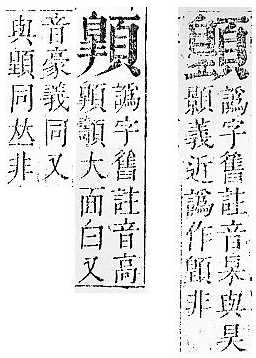 譌字舊註音杲與昊
顥義近譌作非
譌字舊註音高
大面白又
音豪義同又
與同𠀤非